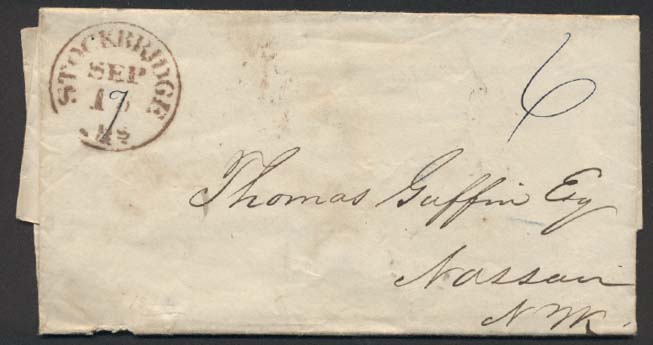 STOCKBRIDGE
SEP
17
Ms
6
Thomas Guffin Esq
Nassau
N Yk